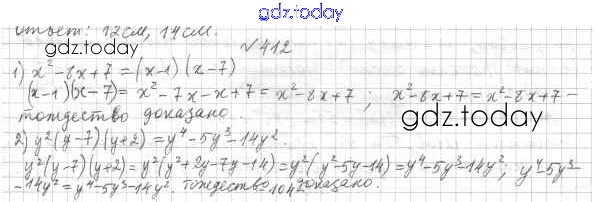 gdz.today
ответ: 12см, 14см.
gdz.today
№412
1) x²-8x+7=(x-1)(x-7)
(x-1)(x-7)= x²-7x-x+7=x²-8x+7 ; x²-8x+7=x²-8x+7 -
тождество доказано.
gdz.today
2) y²(y-7)(y+2)=y⁴-5y³-14y².
y²(y-7)(y+2)=y²(y²+2y-7y-14)=y²(y²-5y-14)=y⁴-5y³-14y²; y⁴-5y³-
-14y²=y⁴-5y³-14y². тождество доказано.
1042